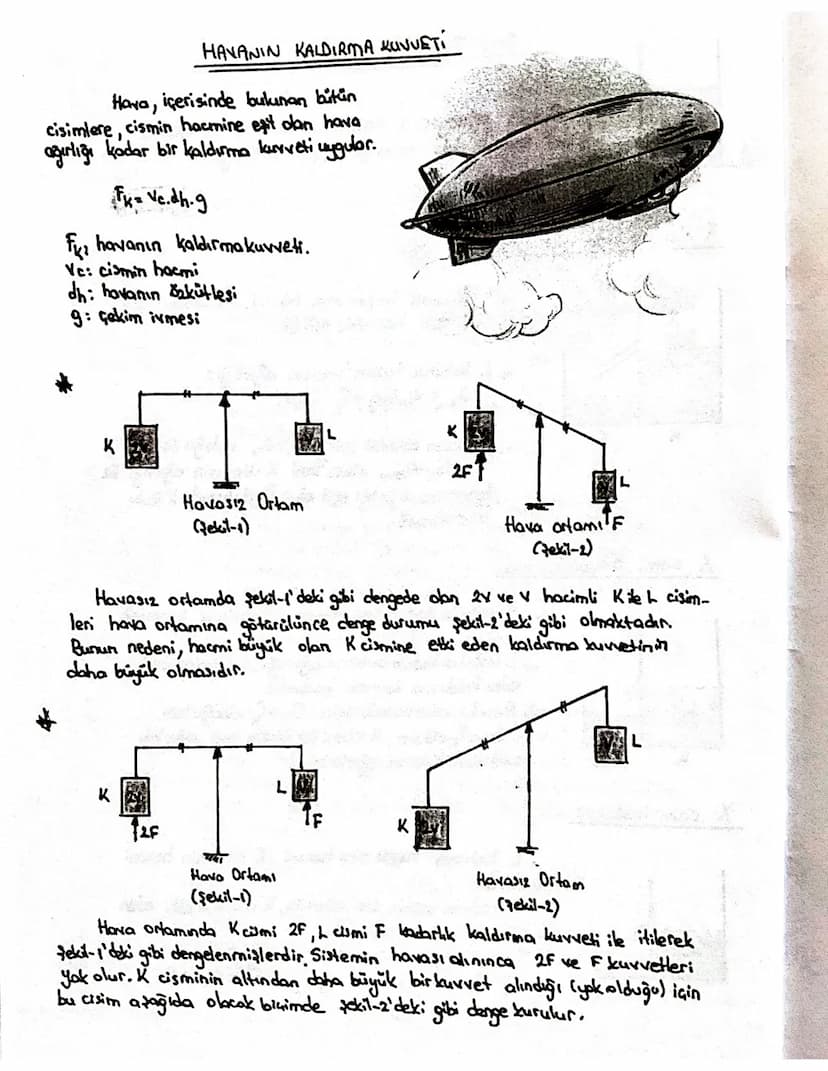 HAVANIN KALDIRMA KUVVETİ
Hava, içerisinde bulunan bütün
cisimlere, cismin hacmine eşit olan hava
ağırlığı kadar bir kaldırma kuvveti uygular.
Fk = Vc.dh.g
Fk: havanın kaldırma kuvveti.
Vc: cismin hacmi
dh: havanın özkütlesi
g: çekim ivmesi
K 2V V L
K 2V V L
2F F
Havasız Ortam
(Şekil-1)
Hava ortamı
(Şekil-2)
Havasız ortamda şekil-1'deki gibi dengede olan 2V ve V hacimli K ile L cisim-
leri hava ortamına götürülünce denge durumu şekil-2'deki gibi olmaktadır.
Bunun nedeni, hacmi büyük olan K cismine etki eden kaldırma kuvvetinin
daha büyük olmasıdır.
K 2V L V
2F F
K 2V V L
Hava Ortamı
(Şekil-1)
Havasız Ortam
(Şekil-2)
Hava ortamında K cismi 2F, L cismi F kadarlık kaldırma kuvveti ile itilerek
şekil-1'deki gibi dengelenmişlerdir. Sistemin havası alınınca 2F ve F kuvvetleri
yok olur. K cisminin altından daha büyük bir kuvvet alındığı (yok olduğu) için
bu cisim aşağıda olacak biçimde şekil-2'deki gibi denge kurulur.